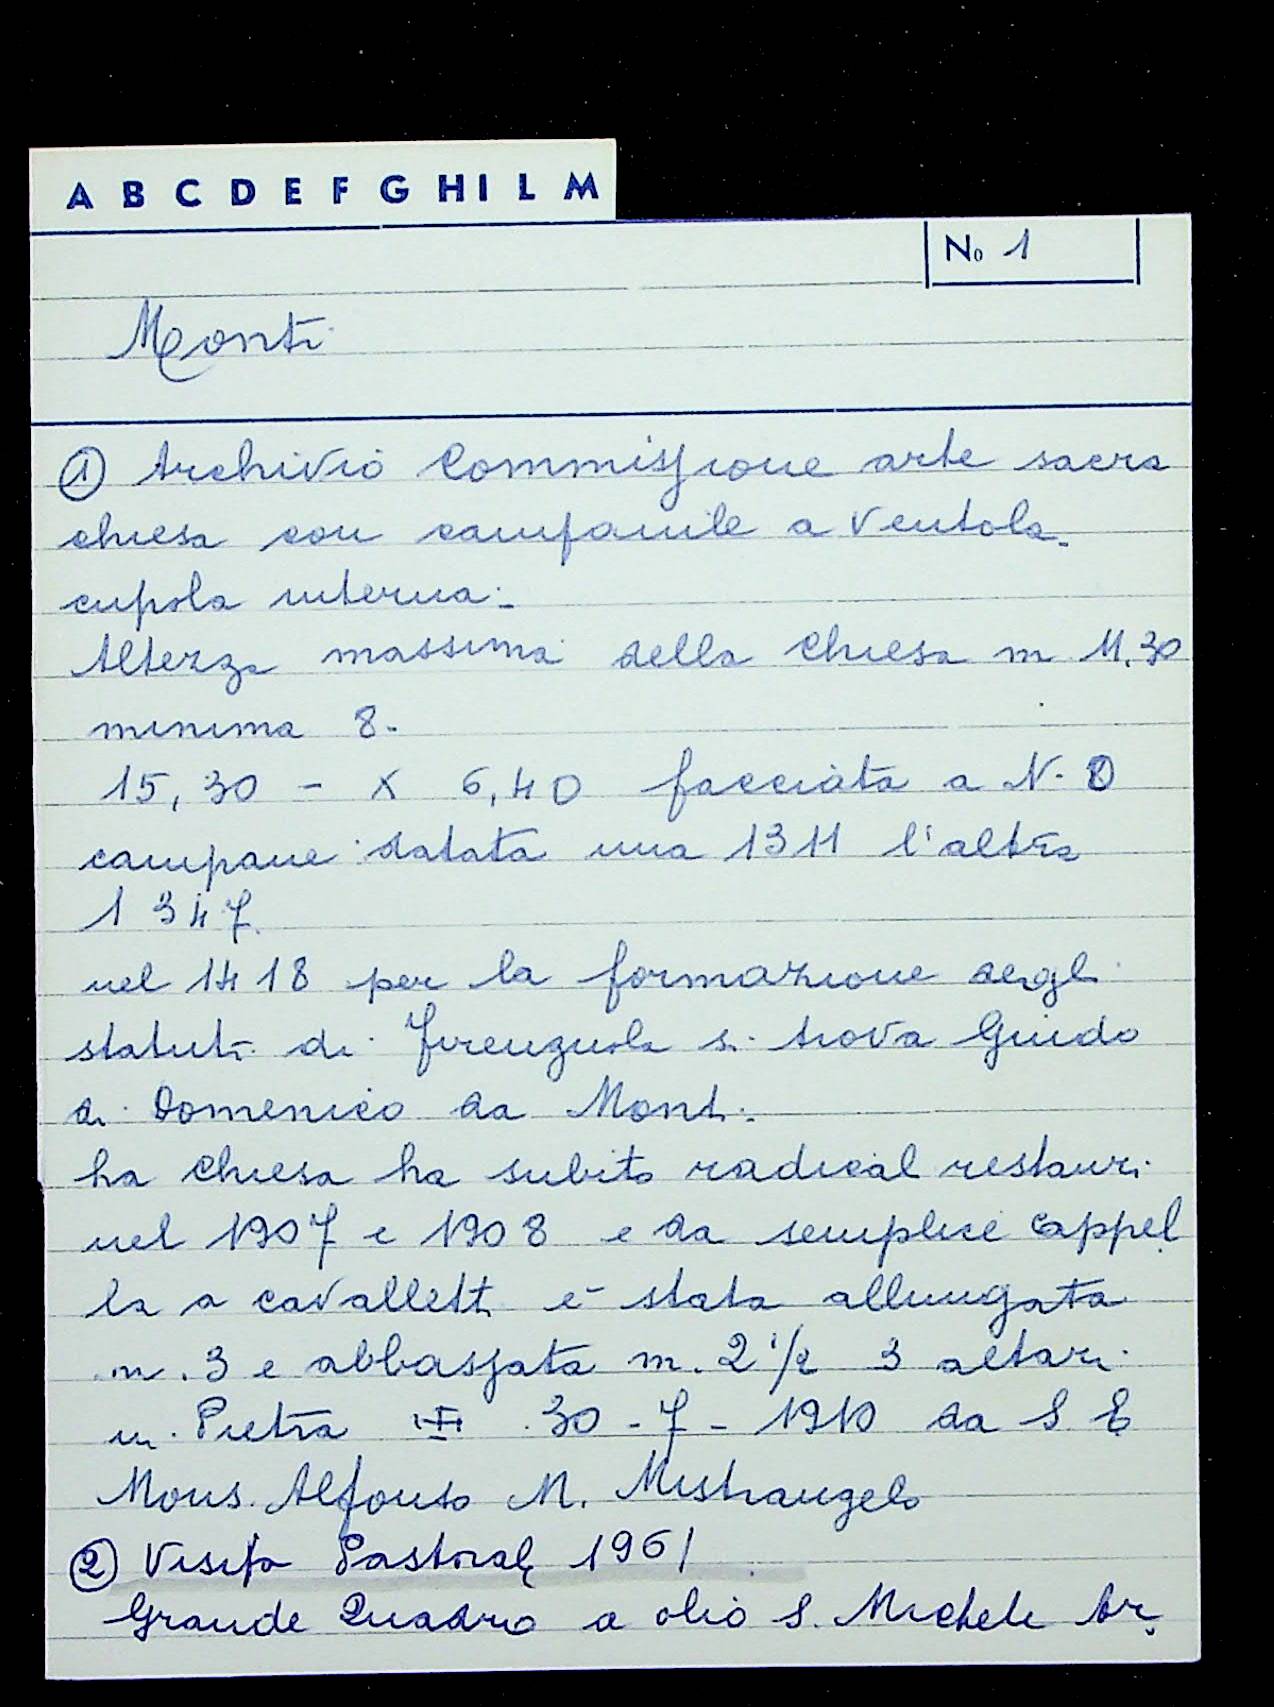 A B C D E F G H I L M
No 1
Monti
① Archivio Commissione arte sacra
chiesa con campanile a ventola.
cupola interna.
Altezza massima della chiesa m 11,30
minima 8.
15,30 - x 6,40 facciata a N. O
campane datata una 1311 l'altra
1347.
nel 1418 per la formazione degli
statuti di Firenzuola si trova Guido
di Domenico da Monti.
La chiesa ha subito radical restauri
nel 1907 e 1908 e da semplice cappel
la a cavalletti è stata allungata
m. 3 e abbassata m. 2 1/2 3 altari
in Pietra 30 - 7 - 1910 da S. E
Mons. Alfonso M. Mistrangelo
② Visita Pastorale 1961
Grande Quadro a olio S. Michele Ar.